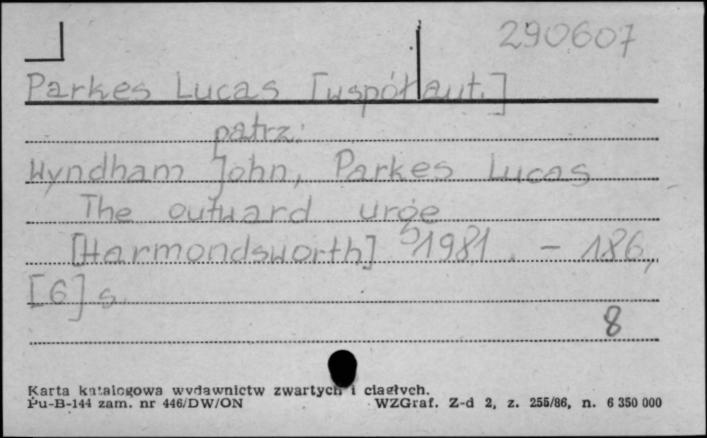 290607
Parkes Lucas [współaut.]
patrz:
Wyndham John, Parkes Lucas
The outward urge
[Harmondsworth] ⁵1981. – 186,
[6] s.
8
Karta katalogowa wydawnictw zwartych i ciągłych.
Pu-B-144 zam. nr 446/DW/ON WZGraf. Z-d 2, z. 255/86, n. 6 350 000